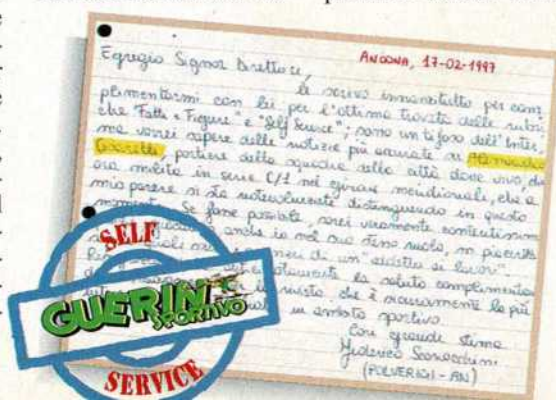 ANCONA, 17-02-1997
Egregio Signor Direttore,
le scrivo innanzitutto per com
plimentarmi con lei per l'ottima trovata delle rubri
che "Fatti e Figure" e "Self Service"; sono un tifoso dell'Inter,
ma vorrei sapere delle notizie più accurate su
portiere della squadra della città dove vivo, che
ora milita in serie C/1 nel girone meridionale, che a
mio parere si sta notevolmente distinguendo in questo
momento. Se fosse possibile, sarei veramente contentissimo
anche io nel suo stesso ruolo, mi piacerebbe
di un "addetto ai lavori".
la saluto complimentan
rivista che è sicuramente la più
in ambito sportivo.
Con grande stima
Federico
(POLVERIGI - AN)
SELF
GUERIN
SPORTIVO
SERVICE